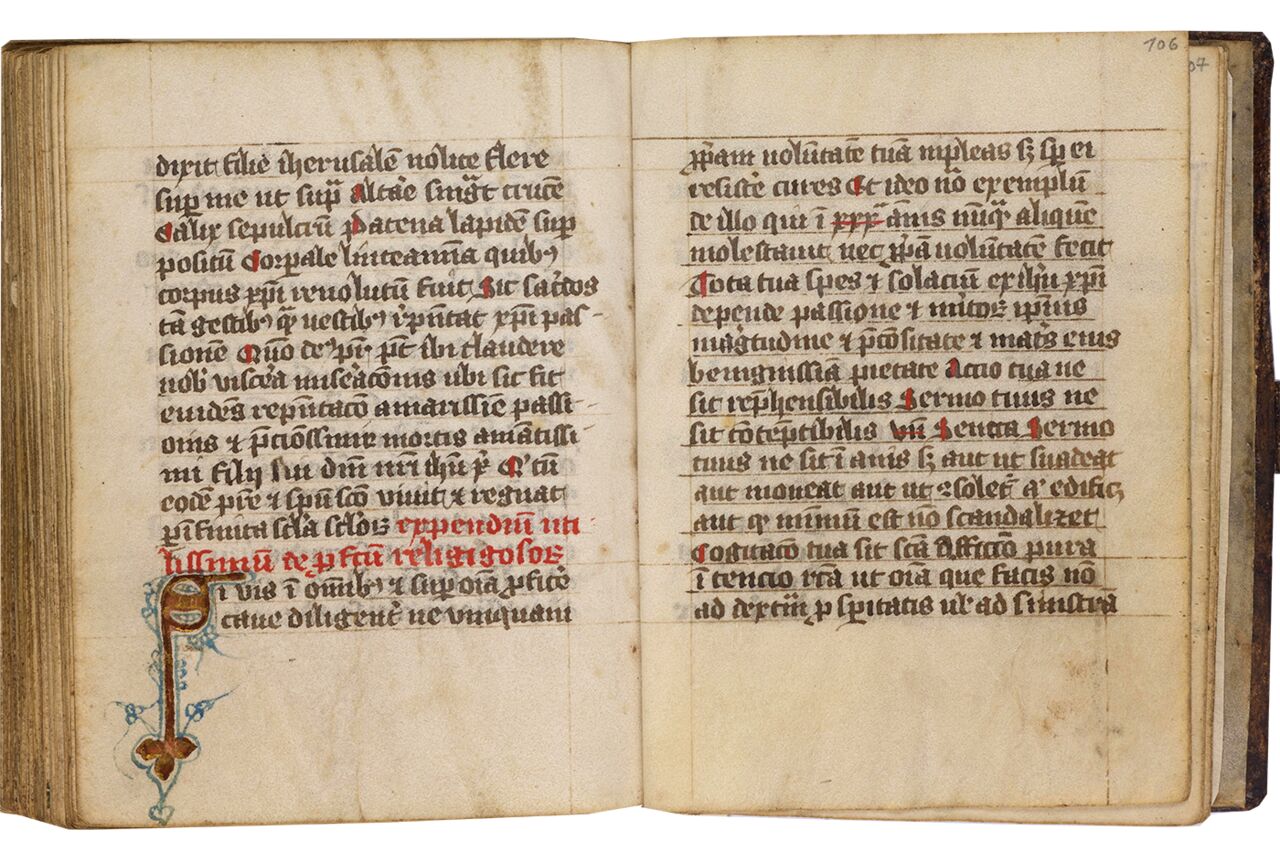 dixit filie iherusalē nolite flere
suꝑ me ut suꝑ Altāe singͣt crucē
Calix sepulcrū Patena lapidē suꝑ
positū Corꝑale linteamīa quibꝫ
corpus xp̄i reuolutū fuit Sit sac̄dos
tā gestibꝫ qͣ uestibꝫ rep̄ntat xp̄i pas-
sionē
nob̄ visc̄a mis̄eac̄onis ubi sit fit
euidēs rep̄ntac̄o amarissīe passi-
onis ⁊ p̄ciosīssime mortis amātissi-
mi filij sui dn̄i nr̄i ihū xp̄i
eodē pr̄e ⁊ spū sc̄o viuit ⁊ regnat
ꝑ īfinita sc̄la sc̄loꝝ expendiū uti-
lissimū de ꝓfc̄tū religigosoꝝ
Si vis ī om̄ibꝫ ⁊ suꝑ oīa ꝓficē
caue diligent̄ ne vmquam
106
ꝓpͥam uolūtatē tuā inpleas sꝫ sꝑ ei
resistē cures Et ideo nō exemplū
de illo qui ī xxx ānis nūqͣ aliquē
molestauit nec ꝓpͥā uolūtatē fecit
Tota tua spes ⁊ solaciū ex ihū xp̄i
depende passione ⁊ mītoꝝ ip̄ius
magͣtudine ⁊ p̄cositate ⁊ mat̄s eius
benignissīa pietate Actio tua ne
sit rep̄hensibilis Sermo tuus ne
sit cōtēptibilis Sermo
tuus ne sit īanis sꝫ aut ut suadeat
aut moueat aut ut ꝯsolet̄ edificꝫ
aut qͥ minimū est nō scandalizet
Cogitac̄o tua sit sc̄a Affectio pura
ītencio rc̄a ut oīa que facis nō
ad dextrā ꝓsꝑitatis ul̄ ad sinistrā
07